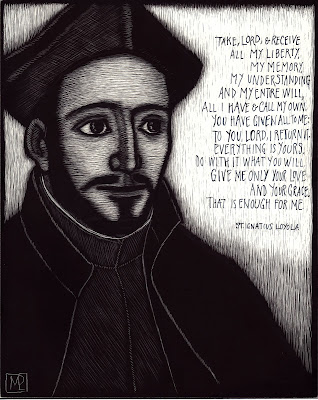 TAKE, LORD, & RECEIVE
ALL MY LIBERTY,
MY MEMORY,
MY UNDERSTANDING
AND MY ENTIRE WILL,
ALL I HAVE & CALL MY OWN.
YOU HAVE GIVEN ALL TO ME:
TO YOU, LORD, I RETURN IT.
EVERYTHING IS YOURS,
DO WITH IT WHAT YOU WILL.
GIVE ME ONLY YOUR LOVE
AND YOUR GRACE,
THAT IS ENOUGH FOR ME.
ST. IGNATIUS LOYOLA